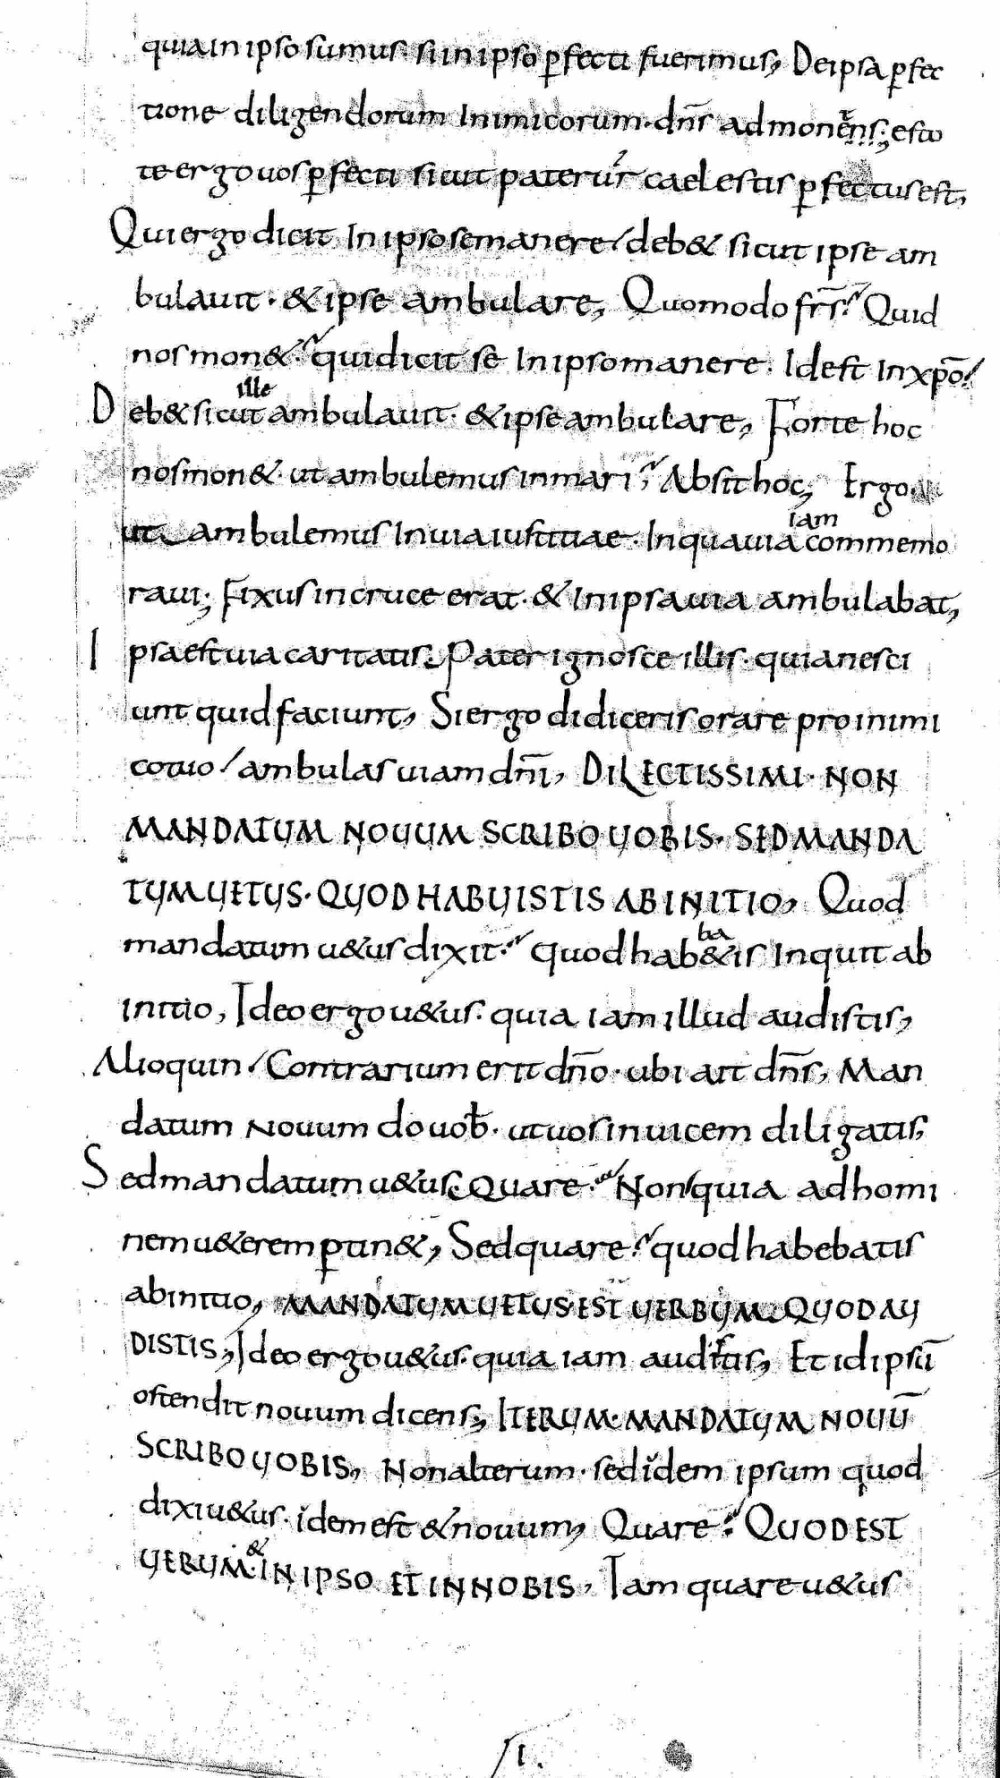 quia in ipso sumus· si in ipso ꝑfecti fuerimus, De ipsa ꝑfec
tione diligendorum Inimicorum· dn̄s admonens; esto
te ergo uos ꝑfecti sicut pater ur̄ caelestis ꝑfectus est,
Qui ergo dicit In ipso se manere/ deb& sicut ipse am
bulauit· & ipse ambulare, Quomodo fr̄s? Quid
nos mon&? qui dicit se In ipso manere· Id est In xp̄o/
Deb& sicut ille ambulauit· & ipse ambulare, Forte hoc
nos mon&· ut ambulemus in mari? Absit hoc; Ergo·
ut ambulemus In uia iustitiae· In qua uia iam commemo
raui; Fixus in cruce erat· & In ipsa uia ambulabat,
Ipsa est uia caritatis. Pater ignosce illis· quia nesci
unt quid faciunt, Si ergo didiceris orare pro inimi
co tuo/ ambulas uiam dn̄i, DILECTISSIMI· NON
MANDATUM NOUUM SCRIBO UOBIS· SED MANDA
TUM UETUS· QUOD HABUISTIS AB INITIO, Quod
mandatum u&us dixit? quod hab&is ba Inquit ab
initio, Ideo ergo u&us· quia iam illud audistis,
Alioquin/ Contrarium erit dn̄o· ubi ait dn̄s, Man
datum Nouum do uob̄· ut uos inuicem diligatis,
Sed mandatum u&us, quare? Non quia ad homi
nem u&erem ꝑtin&, Sed quare? quod habebatis
ab initio, MANDATUM UETUS EST UERBUM· QUOD AU
DISTIS, Ideo ergo u&us· quia iam audistis, Et id ipsū
ostendit nouum dicens, ITERUM· MANDATUM NOUŪ
SCRIBO UOBIS, Non alterum· sed idem ipsum quod
dixi u&us· idem est & nouum, Quare? QUOD EST
UERUM· & IN IPSO ET IN NOBIS, Iam quare u&us